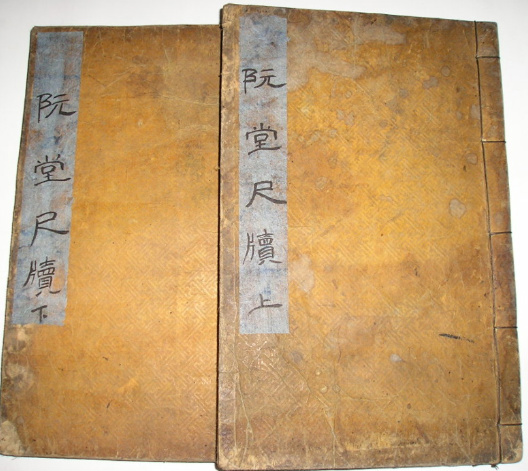 阮堂尺牘上
阮堂尺牘下